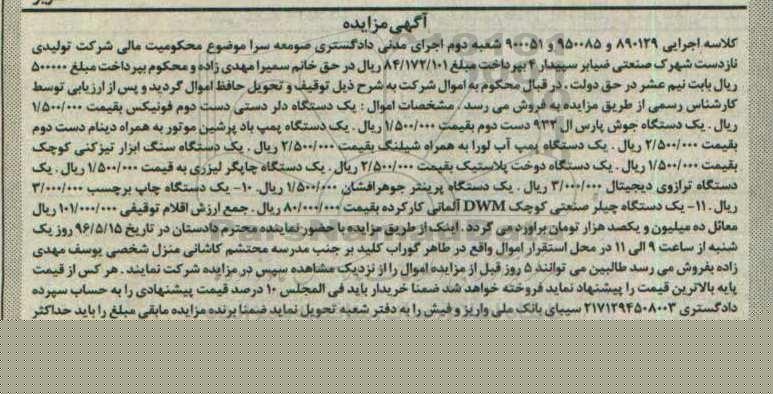 آگهی مزایده
کلاسه اجرایی ۸۹۰۱۲۹ و ۹۵۰۰۸۵ و ۹۰۰۰۵۱ شعبه دوم اجرای مدنی دادگستری صومعه سرا موضوع محکومیت مالی شرکت تولیدی
نازدست شهرک صنعتی ضیابر سپیدار ۴ بپرداخت مبلغ ۸۴/۱۷۲/۱۰۱ ریال در حق خانم سمیرا مهدی زاده و محکوم بپرداخت مبلغ ۵۰۰۰۰۰
ریال بابت نیم عشر در حق دولت . در قبال محکوم به اموال شرکت به شرح ذیل توقیف و تحویل حافظ اموال گردید و پس از ارزیابی توسط
کارشناس رسمی از طریق مزایده به فروش می رسد . مشخصات اموال : یک دستگاه دلر دستی دست دوم فونیکس بقیمت ۱/۵۰۰/۰۰۰
ریال . یک دستگاه جوش پارس ال ۹۳۲ دست دوم بقیمت ۱/۵۰۰/۰۰۰ ریال . یک دستگاه پمپ باد پرشین موتور به همراه دینام دست دوم
بقیمت ۲/۵۰۰/۰۰۰ ریال . یک دستگاه پمپ آب لورا به همراه شیلنگ بقیمت ۲/۵۰۰/۰۰۰ ریال . یک دستگاه سنگ ابزار تیزکنی کوچک
بقیمت ۱/۵۰۰/۰۰۰ ریال . یک دستگاه دوخت پلاستیک بقیمت ۲/۵۰۰/۰۰۰ ریال . یک دستگاه چاپگر لیزری به قیمت ۱/۵۰۰/۰۰۰ ریال . یک
دستگاه ترازوی دیجیتال ۳/۰۰۰/۰۰۰ ریال . یک دستگاه پرینتر جوهرافشان ۱/۵۰۰/۰۰۰ ریال. ۱۰- یک دستگاه چاپ برچسب ۳/۰۰۰/۰۰۰
ریال . ۱۱- یک دستگاه چیلر صنعتی کوچک DWM آلمانی کارکرده بقیمت ۸۰/۰۰۰/۰۰۰ ریال . جمع ارزش اقلام توقیفی ۱۰۱/۰۰۰/۰۰۰ ریال
معادل ده میلیون و یکصد هزار تومان براورد می گردد . اینک از طریق مزایده با حضور نماینده محترم دادستان در تاریخ ۹۶/۵/۱۵ روز یک
شنبه از ساعت ۹ الی ۱۱ در محل استقرار اموال واقع در طاهر گوراب کلید بر جنب مدرسه محتشم کاشانی منزل شخصی یوسف مهدی
زاده بفروش می رسد طالبین می توانند ۵ روز قبل از مزایده اموال را از نزدیک مشاهده سپس در مزایده شرکت نمایند . هر کس از قیمت
پایه بالاترین قیمت را پیشنهاد نماید فروخته خواهد شد ضمنا خریدار باید فی المجلس ۱۰ درصد قیمت پیشنهادی را به حساب سپرده
دادگستری ۲۱۷۱۲۹۴۵۰۸۰۰۳ سیبای بانک ملی واریز و فیش را به دفتر شعبه تحویل نماید ضمنا برنده مزایده مابقی مبلغ را باید حداکثر